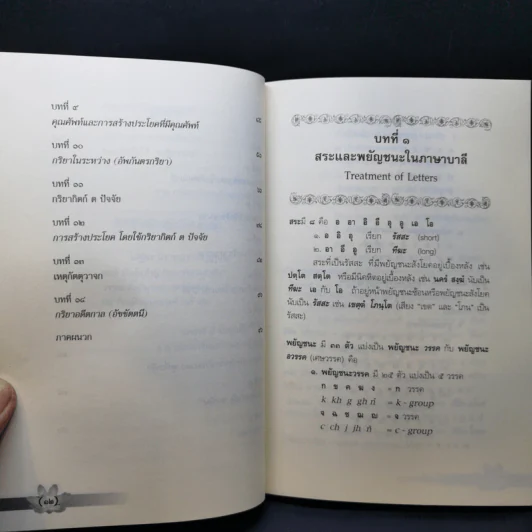 บทที่ ๙
คุณศัพท์และการสร้างประโยคที่มีคุณศัพท์
บทที่ ๑๐
กริยาในระหว่าง (อัพภันตรกริยา)
บทที่ ๑๑
กริยากิตก์ ต ปัจจัย
บทที่ ๑๒
การสร้างประโยค โดยใช้กริยากิตก์ ต ปัจจัย
บทที่ ๑๓
เหตุกัตตุวาจก
บทที่ ๑๔
กริยาอดีตกาล (อัชชัตตนี)
ภาคผนวก
(๑๒)
บทที่ ๑
สระและพยัญชนะในภาษาบาลี
Treatment of Letters
สระมี ๘ คือ อ อา อิ อี อุ อู เอ โอ
๑. อ อิ อุ เรียก รัสสะ (short)
๒. อา อี อู เรียก ทีฆะ (long)
สระที่เป็นรัสสะ ที่มีพยัญชนะสังโยคอยู่เบื้องหลัง เช่น
ปตฺโต สตฺโต หรือมีนิคหิตอยู่เบื้องหลัง เช่น นครํ สงฺฆํ นับเป็น
ทีฆะ เอ กับ โอ ถ้าอยู่หน้าพยัญชนะซ้อนหรือพยัญชนะสังโยค
นับเป็น รัสสะ เช่น เชตุตํ โภนฺโต (เสียง "เชต" และ "โภน" เป็น
รัสสะ)
พยัญชนะ มี ๓๓ ตัว แบ่งเป็น พยัญชนะ วรรค กับ พยัญชนะ
อวรรค (เศษวรรค) คือ
๑. พยัญชนะวรรค มี ๒๕ ตัว แบ่งเป็น ๕ วรรค
ก ข ค ฆ ง = ก วรรค
k kh g gh ṅ = k - group
จ ฉ ช ฌ ญ = จ วรรค
c ch j jh ñ = c - group